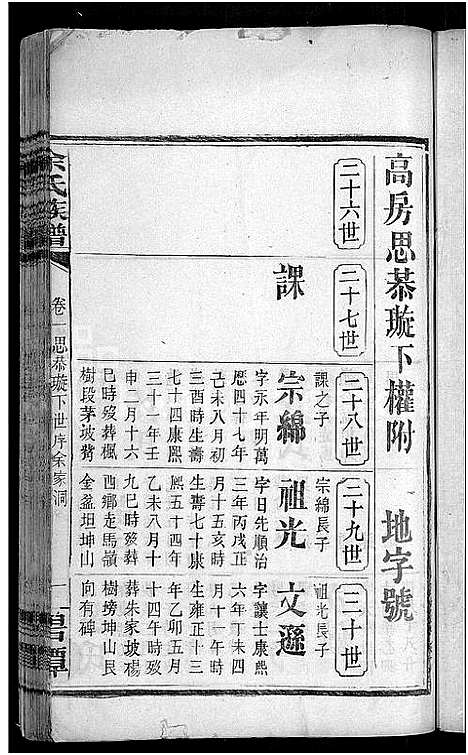 高房思恭璇下權附 地字號
二十六世
二十七世
課
二十八世
課之子
宗綿
字永年明萬
曆四十七年
己未八月初
三酉時生壽
七十四康熙
三十一年壬
申二月十六
巳時歿葬楓
樹段茅坡背
二十九世
宗綿長子
祖光
字日先順治
三年丙戌正
月十五亥時
生壽七十康
熙五十四年
乙未八月十
九巳時歿葬
西鄉走馬嶺
金盆坦坤山
三十世
祖光長子
文遜
字讓士康熙
六年丁未四
月十一午時
生雍正十三
年乙卯五月
十四午時歿
葬朱家坡楊
樹塝坤山艮
向有碑
余氏族譜
卷一思恭璇下世序余家洞
一